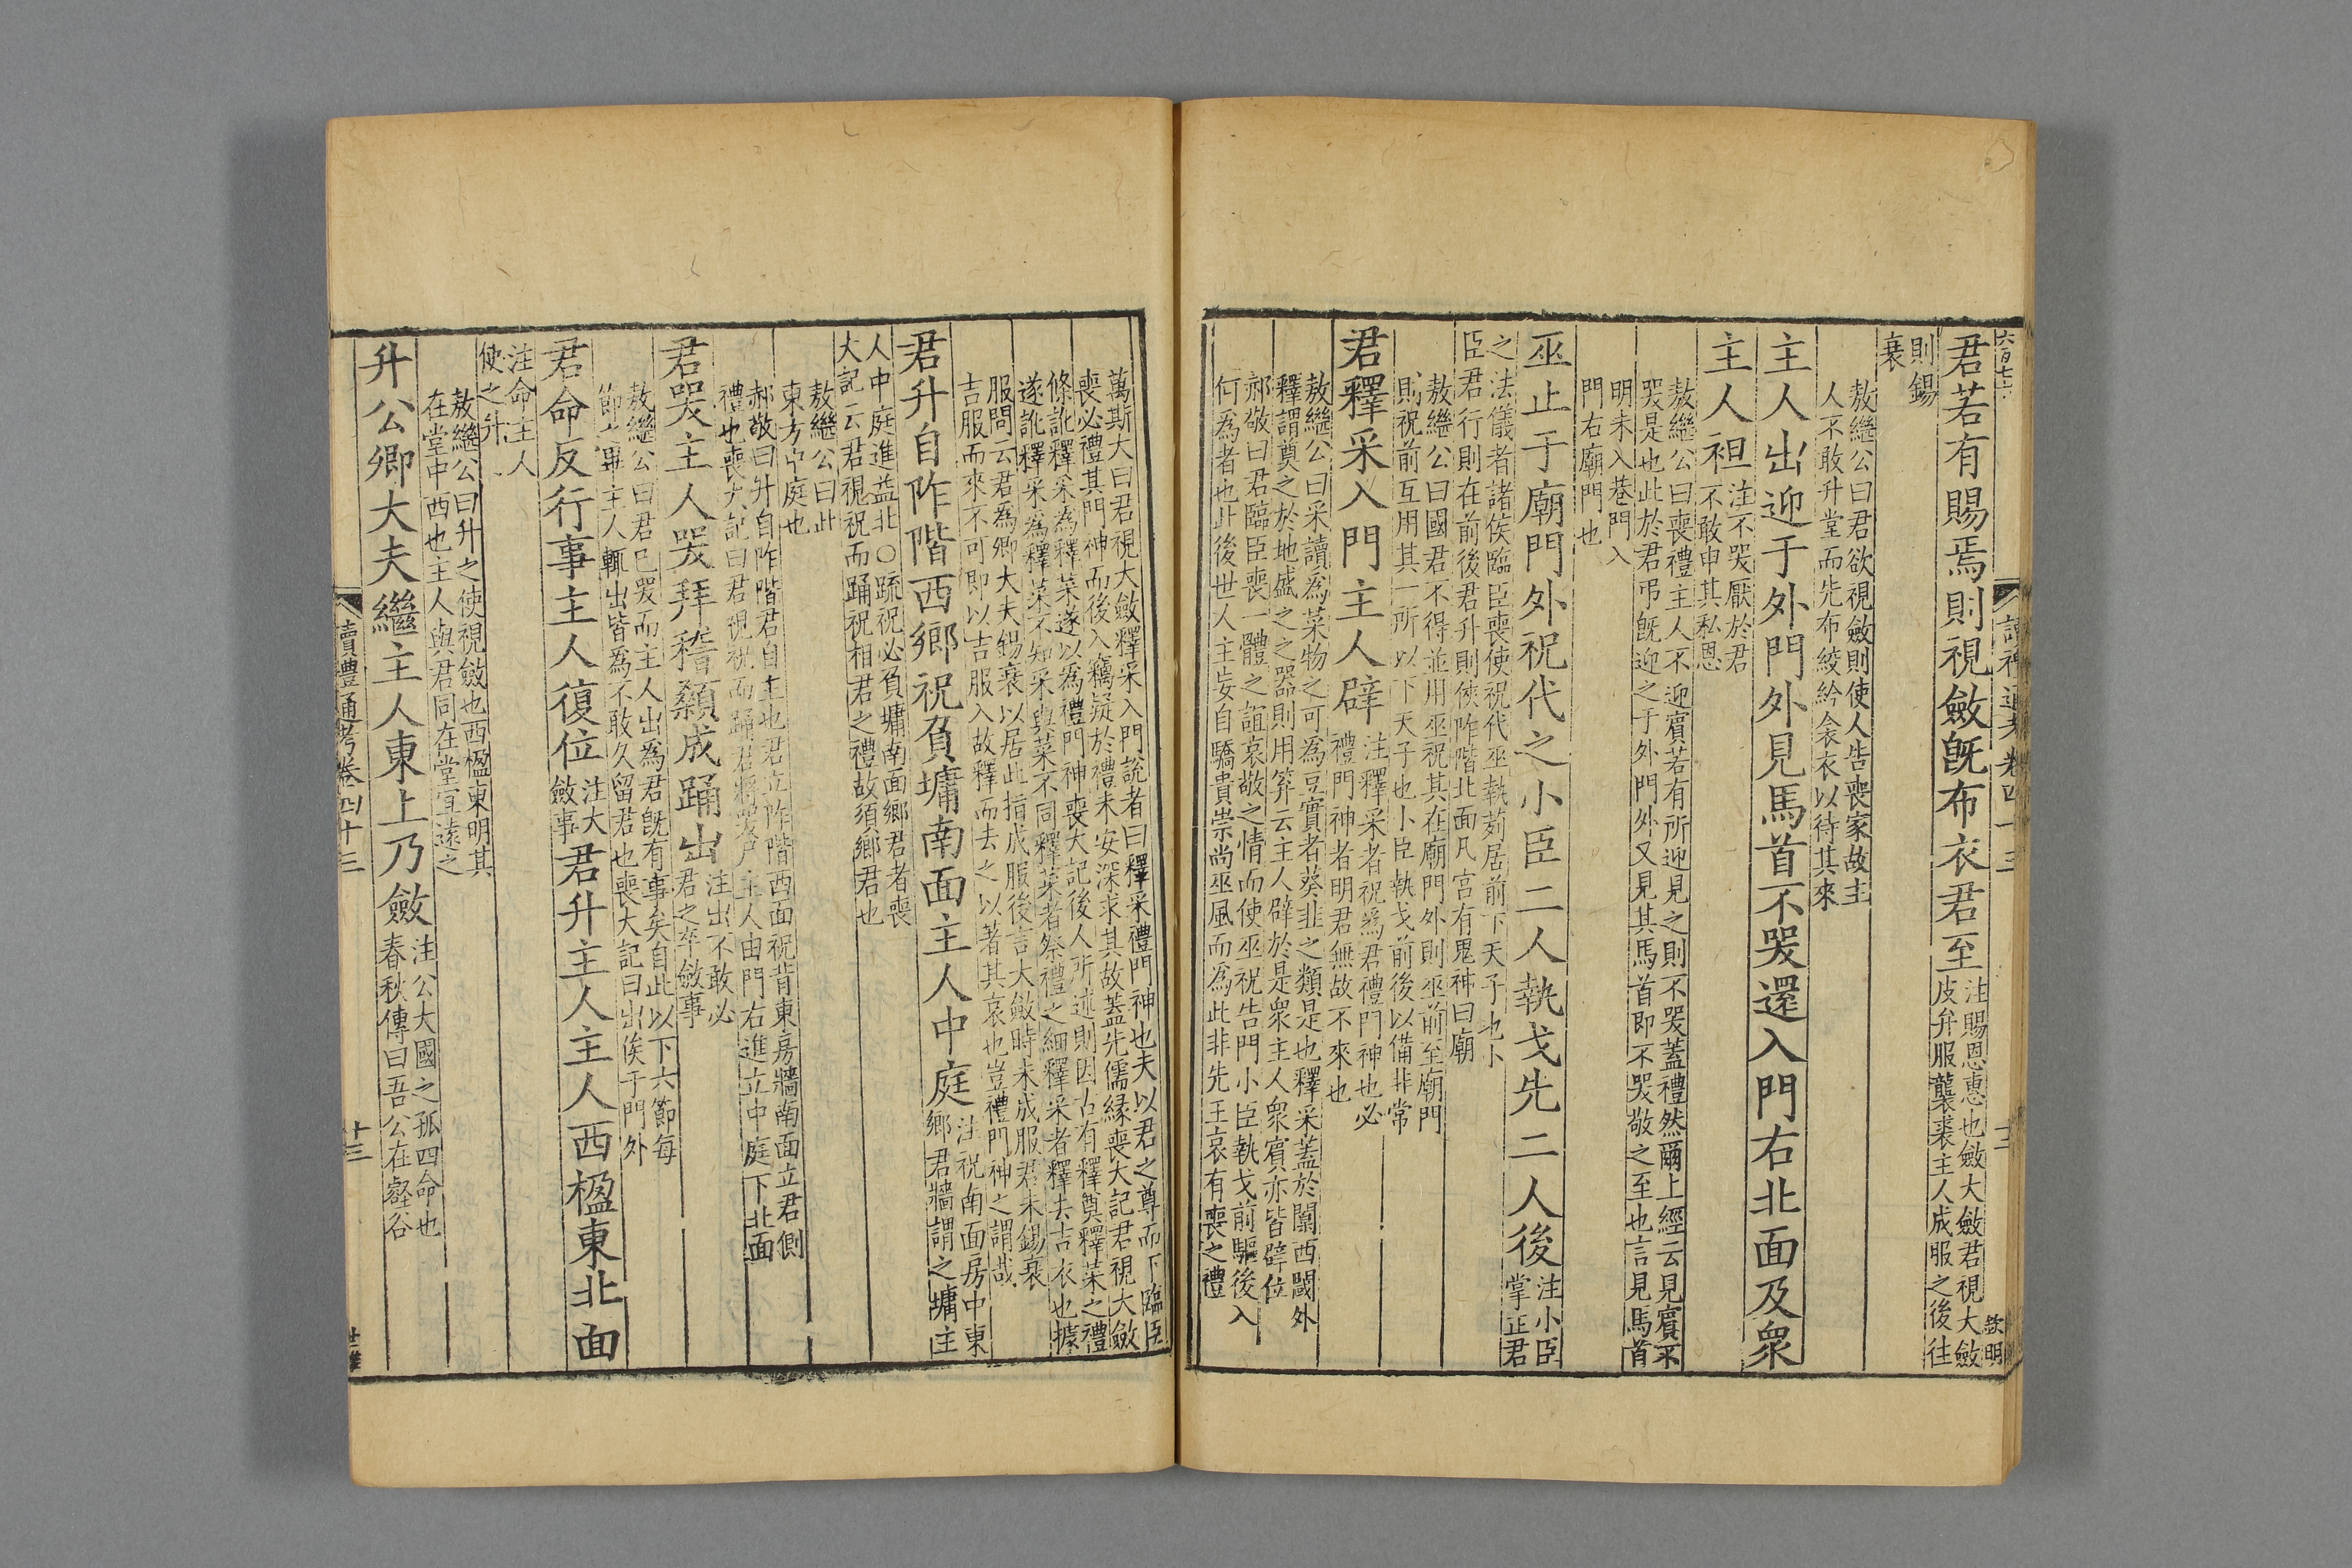 君若有賜焉則視斂旣布衣君至
注賜恩惠也斂大斂君視大斂
皮弁服襲裘主人成服之後往
則錫
衰
敖繼公曰君欲視斂則使人告喪家故主
人不敢升堂而先布絞紟衾衣以待其來
主人出迎于外門外見馬首不哭還入門右北面及衆
主人袒
注不哭厭於君
不敢申其私恩
敖繼公曰喪禮主人不迎賓若有所迎見之則不哭蓋禮然爾上經云見賓不
哭是也此於君弔旣迎之于外門外又見其馬首即不哭敬之至也言見馬首
明未入巷門入
門右廟門也
巫止于廟門外祝代之小臣二人執戈先二人後
注小臣
掌正君
之法儀者諸侯臨臣喪使祝代巫執茢居前下天子也小
臣君行則在前後君升則俠阼階北面凡宮有鬼神曰廟
敖繼公曰國君不得並用巫祝其在廟門外則巫前至廟門
則祝前互用其一所以下天子也小臣執戈前後以備非常
君釋采入門主人辟
注釋采者祝為君禮門神也必
禮門神者明君無故不來也
敖繼公曰采讀為菜物之可為豆實者葵韭之類是也釋采蓋於闑西閾外
釋謂奠之於地盛之之器則用笲云主人辟於是衆主人衆賓亦皆辟位
郝敬曰君臨臣喪一體之誼哀敬之情而使巫祝告門小臣執戈前驅後入
何為者也此後世人主妄自驕貴崇尚巫風而為此非先王哀有喪之禮
萬斯大曰君視大斂釋采入門說者曰釋采禮門神也夫以君之尊而下臨臣
喪必禮其門神而後入竊疑於禮未安深求其故蓋先儒緣喪大記君視大斂
條訛釋采為釋菜遂以為禮門神喪大記後人所述則因古有釋奠釋菜之禮
遂訛釋采為釋菜不知采與菜不同釋菜者祭禮之細釋采者釋去吉衣也據
服問云君為卿大夫錫衰以居此指成服後言大斂時未成服君未錫衰
吉服而來不可即以吉服入故釋而去之以著其哀也豈禮門神之謂哉
君升自阼階西鄉祝負墉南面主人中庭
注祝南面房中東
鄉君牆謂之墉主
人中庭進益北○疏祝必負墉南面鄉君者喪
大記云君視祝而踊祝相君之禮故須鄉君也
敖繼公曰此
東方中庭也
郝敬曰升自阼階君自主也君立阼階西面祝背東房牆南面立君側
禮也喪大記曰君視祝而踊君將哭尸主人由門右進立中庭下北面
君哭主人哭拜稽顙成踊出
注出不敢必
君之卒斂事
敖繼公曰君已哭而主人出為君旣有事矣自此以下六節每
節之畢主人輒出皆為不敢久留君也喪大記曰出俟于門外
君命反行事主人復位
注大
斂事
君升主人主人西楹東北面
注命主人
使之升
敖繼公曰升之使視斂也西楹東明其
在堂中西也主人與君同在堂宜遠之
升公卿大夫繼主人東上乃斂
注公大國之孤四命也
春秋傳曰吾公在壑谷
讀禮通考卷四十三
十三